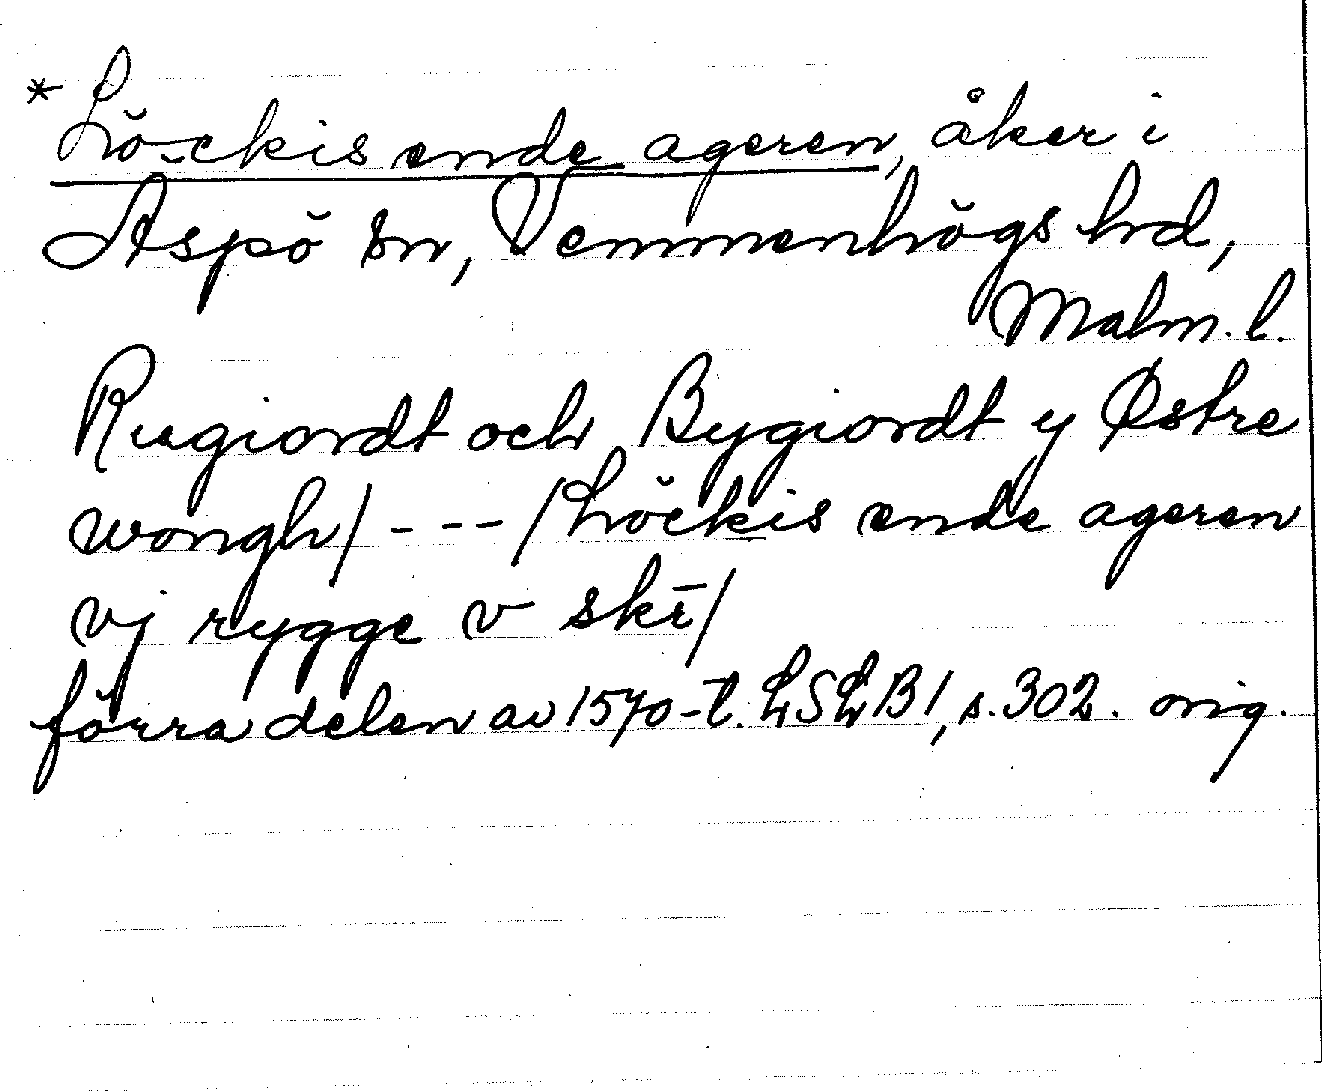 * Löckis ende ageren, åker i
Aspö sn, Vemmenhögs hd,
Malm. l.
Rugiordt och Bygiordt y Østre
wongh/ - - - /Löckis ende ageren
vj rygge v skī/
förra delen av 1570-t. LSLB1, s. 302. orig.